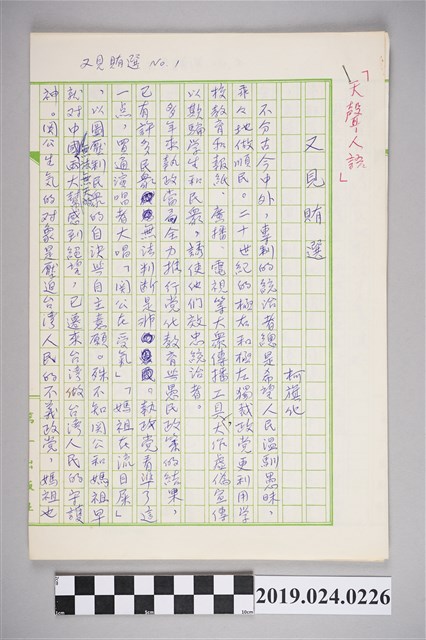 又見賄選 No.1
「天聲人語」
又見賄選
柯旗化
不分古今中外，專制的統治者總是希望人民溫馴愚昧，
乖乖地做順民。二十世紀的極右和極左獨裁政黨更利用學
校教育和報紙、廣播、電視等大眾傳播工具，大作虛偽宣傳
以欺騙學生和民眾，誘使他們效忠統治者。
多年來執政當局全力推行党化教育与愚民政策的結果，
已有許多民眾無法判斷是非。執政党看準了這
一点，買通演唱者大唱「関公在受氣」「媽祖在流目屎」
，以圖壓制民眾的自決与自主意願。殊不知関公和媽祖早
就对中國無法無天大官感到絕望，已遷來台湾做台湾人民的守護
神。関公生氣的对象是壓迫台湾人民的不義政党，媽祖也
cm
5cm
10cm
2019.024.0226